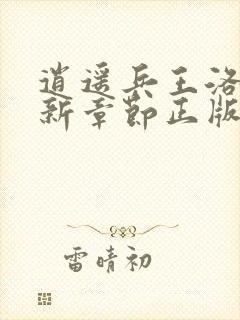 逍遥兵王洛
新章节正版
雷晴初